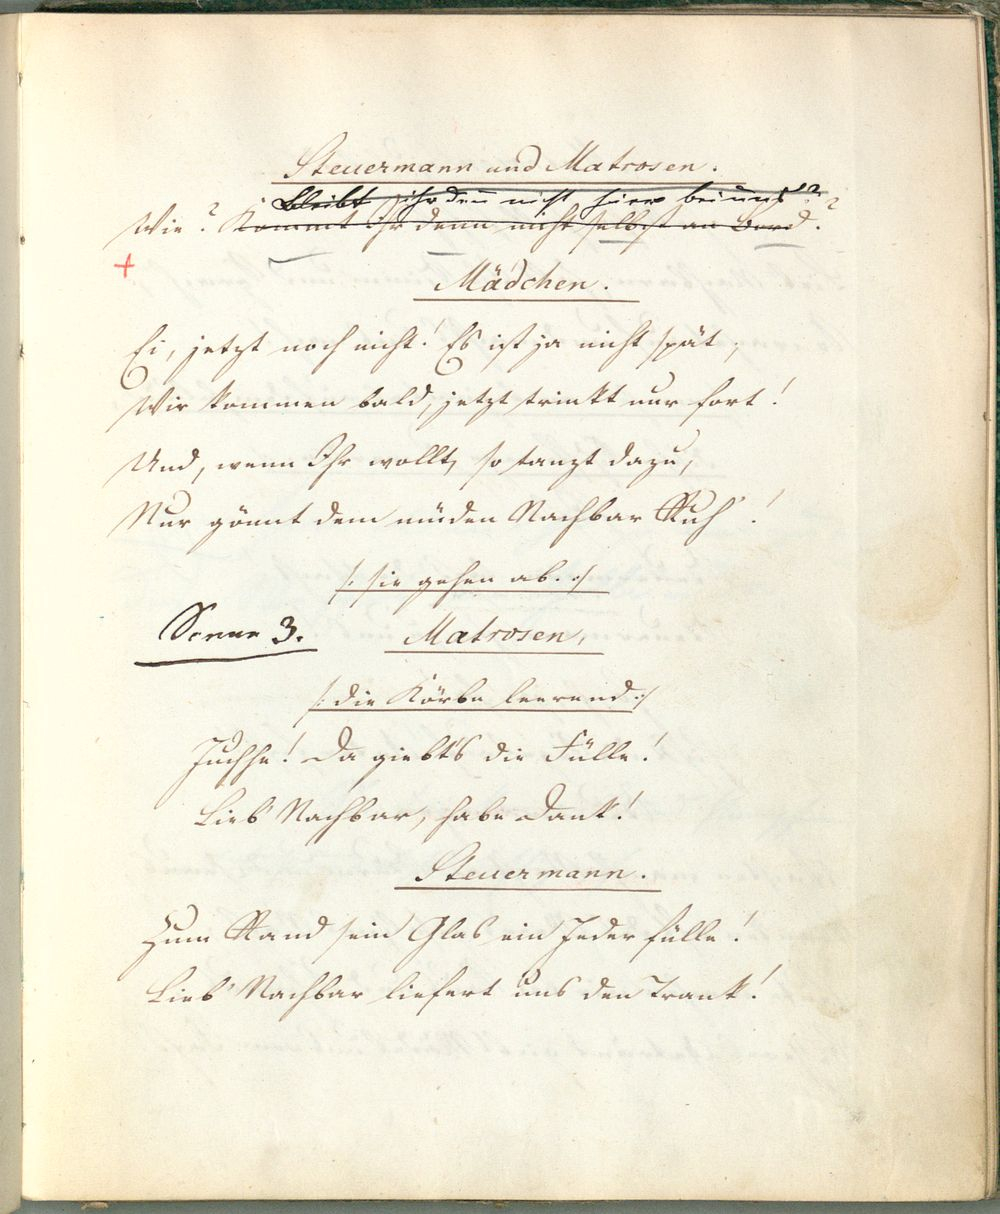 Steuermann und Matrosen.
bleibt ihr denn nicht hier bei uns?
Wie? Kommt Ihr denn nicht selbst an Bord?
Mädchen.
Ei, jetzt noch nicht! Es ist ja nicht spät,
Wir kommen bald, jetzt trinkt nur fort!
Und, wenn Ihr wollt, so tanzt dazu,
Nur gönnt dem müden Nachbar Ruh'!
/: sie gehen ab. :/
Scene 3. Matrosen,
/: die Körbe leerend :/
Juchhe! Da giebt's die Fülle!
Lieb' Nachbar, habe Dank!
Steuermann.
Zum Rand sein Glas ein Jeder fülle!
Lieb' Nachbar liefert uns den Trank!